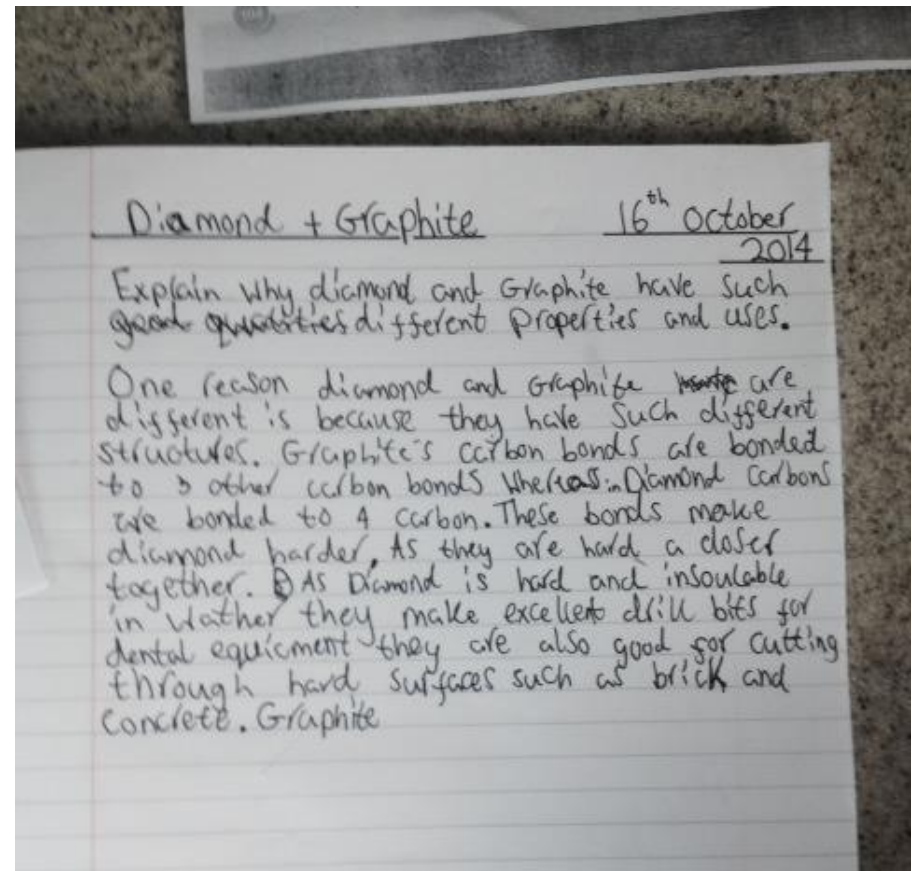 Diamond + Graphite 16th October
2014
Explain why diamond and Graphite have such
good quantities different properties and uses.
One reason diamond and Graphite are
different is because they have such different
structures. Graphite's carbon bonds are bonded
to 3 other carbon bonds whereas in Diamond carbons
are bonded to 4 carbon. These bonds make
diamond harder, As they are hard a closer
together. As Diamond is hard and insoulable
in wather they make excellent drill bits for
dental equicment they are also good for cutting
through hard surfaces such as brick and
concrete. Graphite